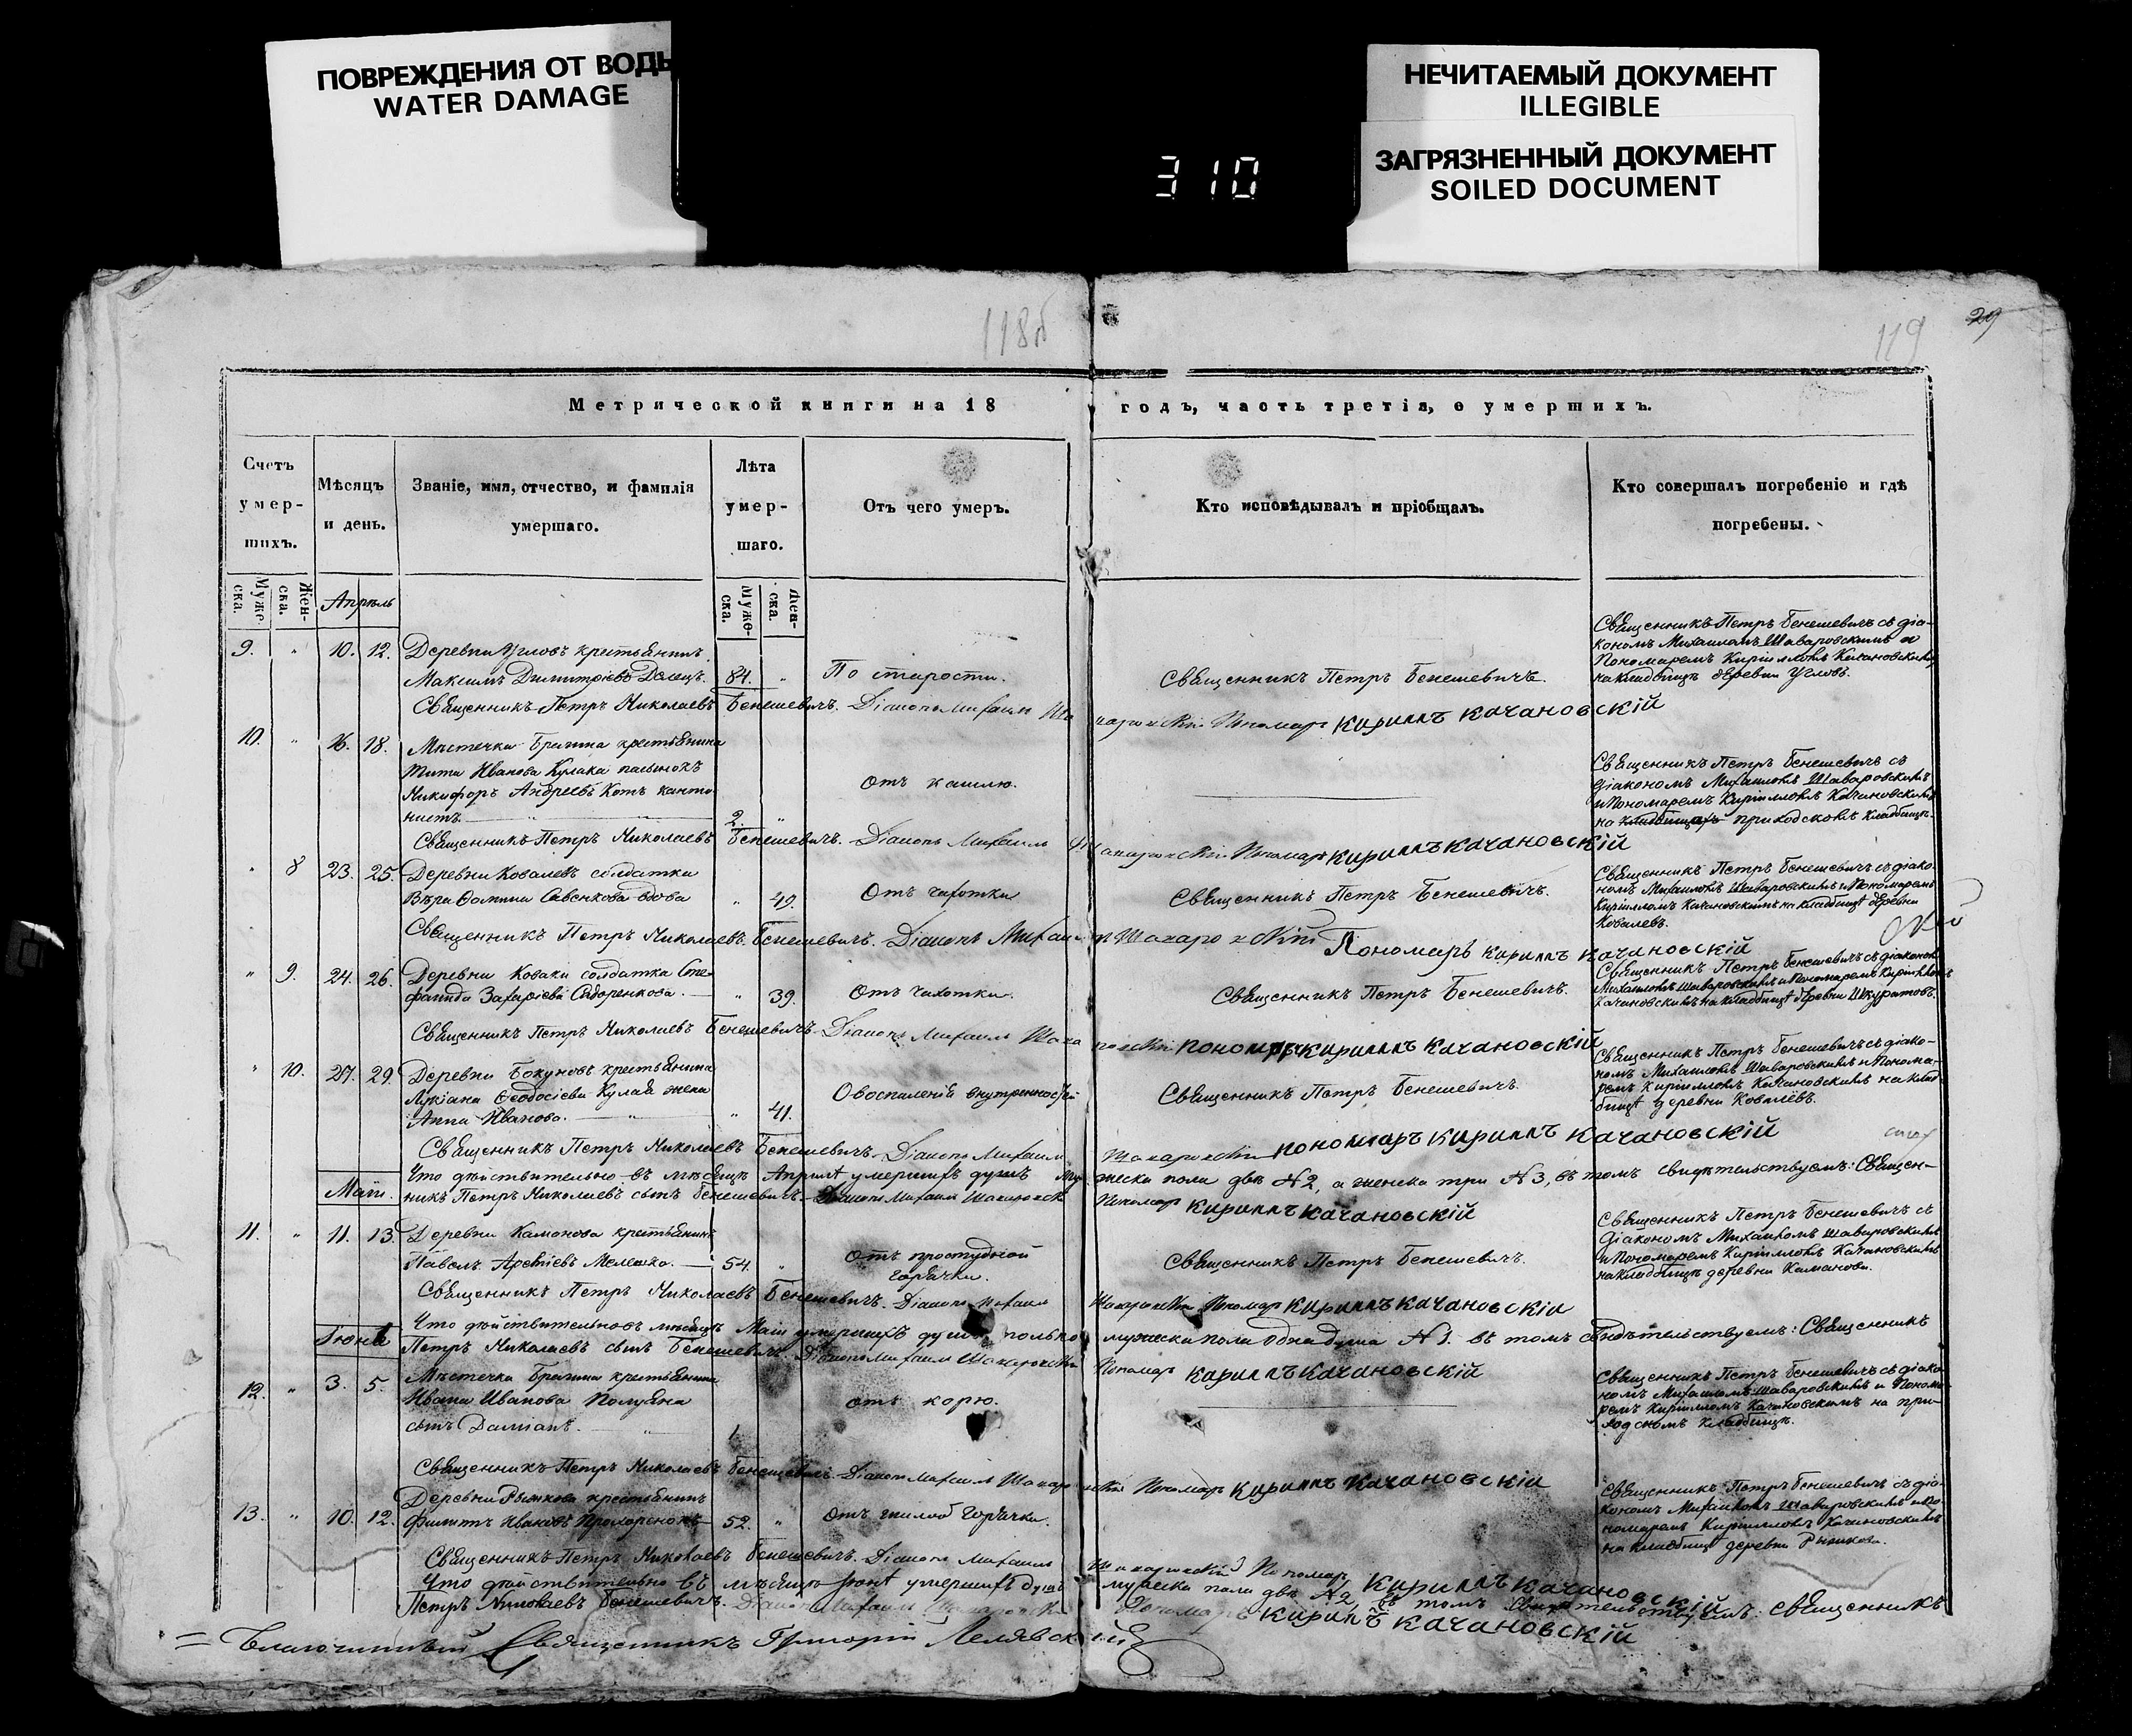 ПОВРЕЖДЕНИЯ ОТ ВОДЫ
WATER DAMAGE
НЕЧИТАЕМЫЙ ДОКУМЕНТ
ILLEGIBLE
ЗАГРЯЗНЕННЫЙ ДОКУМЕНТ
SOILED DOCUMENT
310
118б
119
29
Метрической книги на 18 годъ, часть третія, о умершихъ.
Счетъ умер-шихъ.
Мѣсяцъ и день.
Званіе, имя, отчество, и фамилія умершаго.
Лѣта умер-шаго.
Отъ чего умеръ.
Кто исповѣдывалъ и пріобщалъ.
Кто совершалъ погребеніе и гдѣ погребены.
Муже-ска.
Жен-ска.
Апрѣль
Муже-ска.
Жен-ска.
9. " 10. 12.
Деревни Угловъ крестьянинъ
Максимъ Димитріевъ
84. "
По старости.
Священникъ Петръ Бенешевичъ.
Священникъ Петръ Бенешевичъ съ діа-
кономъ Михаиломъ Шаваровскимъ и
Пономаремъ Кирилломъ Качановскимъ
на кладбищѣ деревни Угловъ.
Священникъ Петръ Николаевъ Бенешевичъ. Діаконъ Михаилъ
Пономарь Кириллъ Качановскій
10. " 16. 18.
Мѣстечка Брагина крестьянина
Тита Иванова Кулака пасынокъ
Никифоръ Андреевъ Котъ канто-
нистъ.
2. "
Отъ кашлю.
Священникъ Петръ Бенешевичъ съ
діакономъ Михаиломъ Шаваровскимъ
и Пономаремъ Кирилломъ Качановскимъ
на приходскомъ кладбищѣ.
Священникъ Петръ Николаевъ Бенешевичъ. Діаконъ Михаилъ
Пономарь Кириллъ Качановскій
" 8 23. 25.
Деревни Ковалевъ солдатка
Вѣра Ѳомина Савенкова вдова
" 49.
Отъ чахотки
Священникъ Петръ Бенешевичъ.
Священникъ Петръ Бенешевичъ съ діако-
номъ Михаиломъ Шаваровскимъ и Пономаремъ
Кирилломъ Качановскимъ на кладбищѣ деревни
Ковалевъ.
Священникъ Петръ Николаевъ Бенешевичъ. Діаконъ Михаилъ
Пономарь Кириллъ Качановскій
" 9. 24. 26.
Деревни Козаки солдатка Сте-
фанида Захаріева Сидоренкова.
" 39.
Отъ чахотки.
Священникъ Петръ Бенешевичъ.
Священникъ Петръ Бенешевичъ съ діакономъ
Михаиломъ Шаваровскимъ и Пономаремъ Кирилломъ
Качановскимъ на кладбищѣ деревни Шкуратовъ.
Священникъ Петръ Николаевъ Бенешевичъ. Діаконъ Михаилъ
Пономарь Кириллъ Качановскій
" 10. 27. 29.
Деревни Бокуновъ крестьянина
Лукіана Ѳеодосіева Кулая жена
Анна Иванова.
" 41.
О воспаленія внутренностей
Священникъ Петръ Бенешевичъ.
Священникъ Петръ Бенешевичъ съ діако-
номъ Михаиломъ Шаваровскимъ и Понома-
ремъ Кирилломъ Качановскимъ на клад-
бищѣ деревни Ковалевъ.
Священникъ Петръ Николаевъ Бенешевичъ. Діаконъ Михаилъ
Пономарь Кириллъ Качановскій
Что дѣйствительно въ мѣсяцѣ Априлѣ умершихъ душъ му-
жеска пола двѣ № 2, а женска три № 3, въ томъ свидѣтельствуемъ: Священ-
Май.
никъ Петръ Николаевъ сынъ Бенешевичъ. Діаконъ Михаилъ
Пономарь Кириллъ Качановскій
11. " 11. 13.
Деревни Каманова крестьянинъ
Павелъ Мелешко.
54. "
Отъ простудной
горячки.
Священникъ Петръ Бенешевичъ.
Священникъ Петръ Бенешевичъ съ
діакономъ Михаиломъ Шаваровскимъ
и Пономаремъ Кирилломъ Качановскимъ
на кладбищѣ деревни Каманова.
Священникъ Петръ Николаевъ Бенешевичъ. Діаконъ Михаилъ
Пономарь Кириллъ Качановскій
Что дѣйствительно въ мѣсяцѣ Маіи умершихъ душъ только
мужеска пола одна душа № 1. въ томъ свидѣтельствуемъ: Священникъ
Іюнь
Петръ Николаевъ сынъ Бенешевичъ. Діаконъ Михаилъ
Пономарь Кириллъ Качановскій
12. " 3. 5.
Мѣстечка Брагина крестьянина
Ивана Иванова
сынъ Даміанъ.
1. "
отъ корю.
Священникъ Петръ Бенешевичъ съ діако-
номъ Михаиломъ Шаваровскимъ и Понома-
ремъ Кирилломъ Качановскимъ на при-
ходскомъ кладбищѣ.
Священникъ Петръ Николаевъ Бенешевичъ. Діаконъ Михаилъ
Пономарь Кириллъ Качановскій
13. " 10. 12.
Деревни Рыжкова крестьянинъ
Филиппъ Ивановъ Прохоренокъ
52. "
Отъ гнилой горячки.
Священникъ Петръ Бенешевичъ съ діа-
кономъ Михаиломъ Шаваровскимъ и По-
номаремъ Кирилломъ Качановскимъ
на кладбищѣ деревни Рыжкова.
Священникъ Петръ Николаевъ Бенешевичъ. Діаконъ Михаилъ
Пономарь Кириллъ Качановскій
Что дѣйствительно въ мѣсяцѣ Іюнѣ умершихъ душъ
мужеска пола двѣ № 2, въ томъ свидѣтельствуемъ: Священникъ
Петръ Николаевъ Бенешевичъ. Діаконъ Михаилъ
Пономарь Кириллъ Качановскій
Благочинный Священникъ Григорій Лелявскій